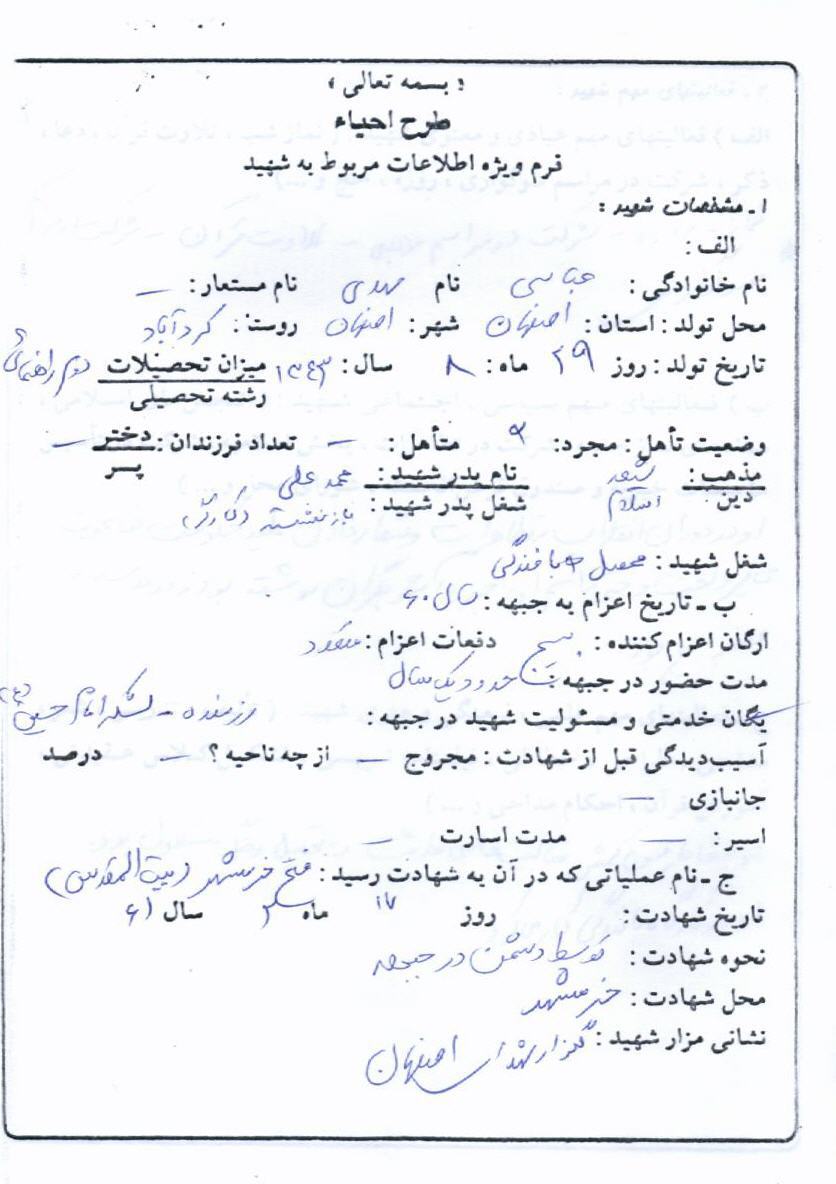 « بسمه تعالی »
طرح احیاء
فرم ویژه اطلاعات مربوط به شهید
۱ـ مشخصات شهید :
الف :
نام خانوادگی : عباسی نام مهدی نام مستعار : ــ
محل تولد : استان : اصفهان شهر : اصفهان روستا : گردآباد
تاریخ تولد : روز ۲۹ ماه : ۸ سال : ۱۳۴۳ میزان تحصیلات دوم راهنمائی
رشته تحصیلی
وضعیت تأهل : مجرد : متأهل : ــ تعداد فرزندان : دختر ــ
پسر
مذهب : شیعه نام پدر شهید : محمدعلی
دین : اسلام شغل پدر شهید : بازنشسته (کارگر)
شغل شهید : محصل
ب ـ تاریخ اعزام به جبهه : سال ۶۰
ارگان اعزام کننده : بسیج دفعات اعزام :
مدت حضور در جبهه : حدود یک سال
یگان خدمتی و مسئولیت شهید در جبهه : رزمنده ـ لشکر امام حسین (ع)
آسیب‌دیدگی قبل از شهادت : مجروح ــ از چه ناحیه ؟ ــ درصد
جانبازی ــ
اسیر : ــ مدت اسارت ــ
ج ـ نام عملیاتی که در آن به شهادت رسید : فتح خرمشهر (بیت المقدس)
تاریخ شهادت : روز ۱۷ ماه ۲ سال ۶۱
نحوه شهادت : توسط دشمن در جبهه
محل شهادت : خرمشهر
نشانی مزار شهید : گلزار شهدای اصفهان